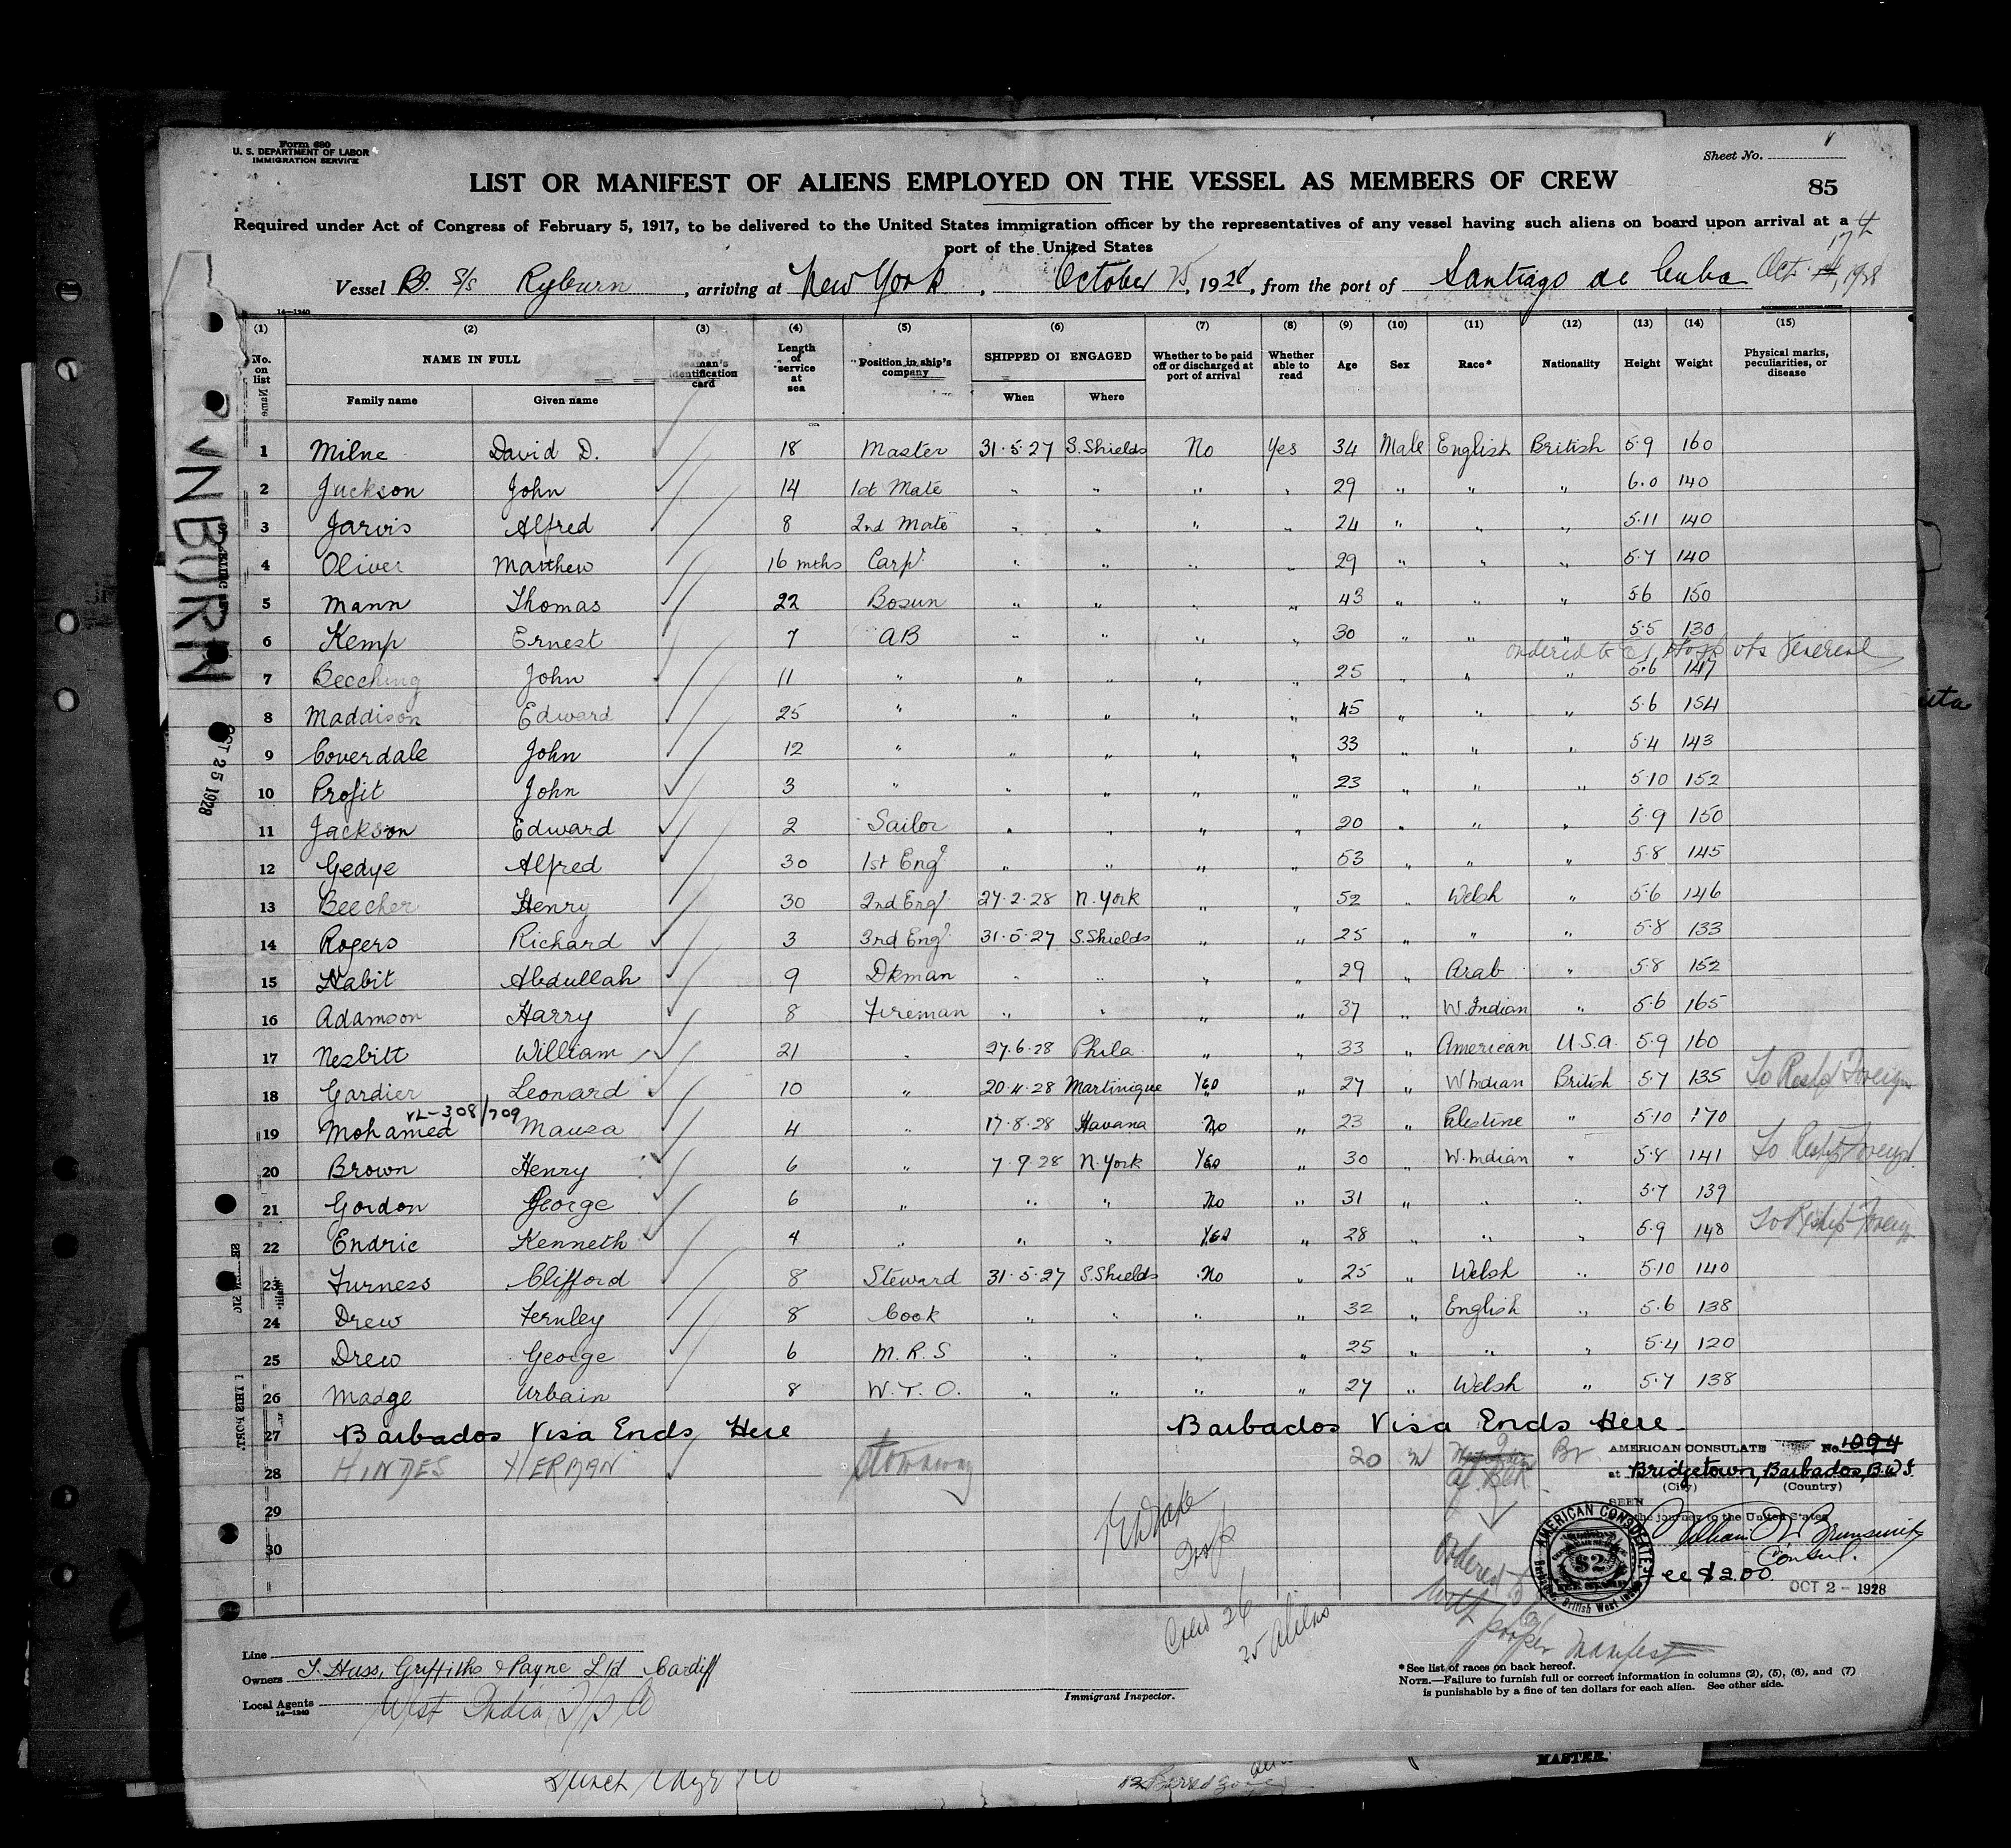 Form 680
U. S. DEPARTMENT OF LABOR
IMMIGRATION SERVICE
Sheet No.
85
LIST OR MANIFEST OF ALIENS EMPLOYED ON THE VESSEL AS MEMBERS OF CREW
Required under Act of Congress of February 5, 1917, to be delivered to the United States immigration officer by the representatives of any vessel having such aliens on board upon arrival at a
port of the United States
Vessel Br. S/S Ryburn, arriving at New York, October 25, 1928, from the port of Santiago de Cuba Oct. 17th, 1928
14—1240
(1) (2) (3) (4) (5) (6) (7) (8) (9) (10) (11) (12) (13) (14) (15)
No. on list NAME IN FULL No. of seaman's identification card Length of service at sea Position in ship's company SHIPPED OR ENGAGED Whether to be paid off or discharged at port of arrival Whether able to read Age Sex Race* Nationality Height Weight Physical marks, peculiarities, or disease
Family name Given name When Where
1 Milne David D. 18 Master 31·5·27 S.Shields No Yes 34 Male English British 5·9 160
2 Jackson John 14 1st Mate " " " " 29 " " " 6·0 140
3 Jarvis Alfred 8 2nd Mate " " " " 24 " " " 5·11 140
4 Oliver Matthew 16 mths Carpr " " " " 29 " " " 5·7 140
5 Mann Thomas 22 Bosun " " " " 43 " " " 5·6 150
6 Kemp Ernest 7 AB " " " " 30 " " " 5·5 130
ordered to E I Hosp obs venereal
7 Beeching John 11 " " " " " 25 " " " 5·6 147
8 Maddison Edward 25 " " " " " 45 " " " 5·6 154
9 Coverdale John 12 " " " " " 33 " " " 5·4 143
10 Profit John 3 " " " " " 23 " " " 5·10 152
11 Jackson Edward 2 Sailor " " " " 20 " " " 5·9 150
12 Gedye Alfred 30 1st Engr " " " " 53 " " " 5·8 145
13 Beecher Henry 30 2nd Engr 27·2·28 N.York " " 52 " Welsh " 5·6 146
14 Rogers Richard 3 3rd Engr 31·5·27 S.Shields " " 25 " " " 5·8 133
15 Nabit Abdullah 9 Dkman " " " " 29 " Arab " 5·8 152
16 Adamson Harry 8 Fireman " " " " 37 " W.Indian " 5·6 165
17 Nesbitt William 21 " 27·6·28 Phila " " 33 " American U.S.a. 5·9 160
18 Gardier Leonard 10 " 20·4·28 Martinique Yes " 27 " W Indian British 5·7 135 To Reship Foreign
VL-308/709
19 Mohamed Mausa 4 " 17·8·28 Havana No " 23 " Palestine " 5·10 170
20 Brown Henry 6 " 7·9·28 N.York Yes " 30 " W.Indian " 5·8 141 To Reship Foreign
21 Gordon George 6 " " " No " 31 " " " 5·7 139
22 Endric Kenneth 4 " " " Yes " 28 " " " 5·9 148 To Reship Foreign
23 Furness Clifford 8 Steward 31·5·27 S.Shields No " 25 " Welsh " 5·10 140
24 Drew Fernley 8 Cook " " " " 32 " English " 5·6 138
25 Drew George 6 M.R.S " " " " 25 " " " 5·4 120
26 Madge Urbain 8 W.T.O. " " " " 27 " Welsh " 5·7 138
27 Barbados Visa Ends Here Barbados Visa Ends Here
28 HINDES HERMAN Stowaway 20 M af. Blk Br
29
30
AMERICAN CONSULATE No. 1094
at Bridgetown, Barbados, B.W.I.
(City) (Country)
SEEN
the journey to the United States
Consul.
Fee $2.00
OCT 2 - 1928
AMERICAN CONSULATE
$2
British West Indies
Insp
ordered to E I
with proper manifest
Crew 26
25 aliens
Line
Owners T. Huss, Griffiths & Payne Ltd Cardiff
Local Agents West India S/S Co
14—1240
Immigrant Inspector.
*See list of races on back hereof.
NOTE.—Failure to furnish full or correct information in columns (2), (5), (6), and (7)
is punishable by a fine of ten dollars for each alien. See other side.
OCT 25 1928
MASTER.